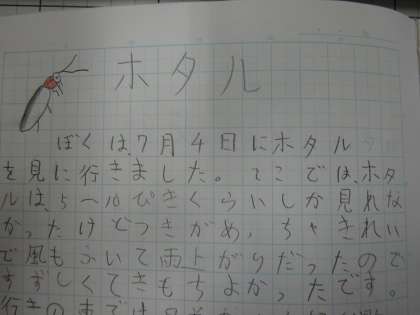 ホタル
ぼくは、7月4日にホタル
を見に行きました。そこでは、ホタ
ルは、5〜10ぴきくらいしか見れな
かったけどつきがめ,ちゃきれい
で風もふいて雨上がりだったので
すずしくてきもちよかったです。
行き